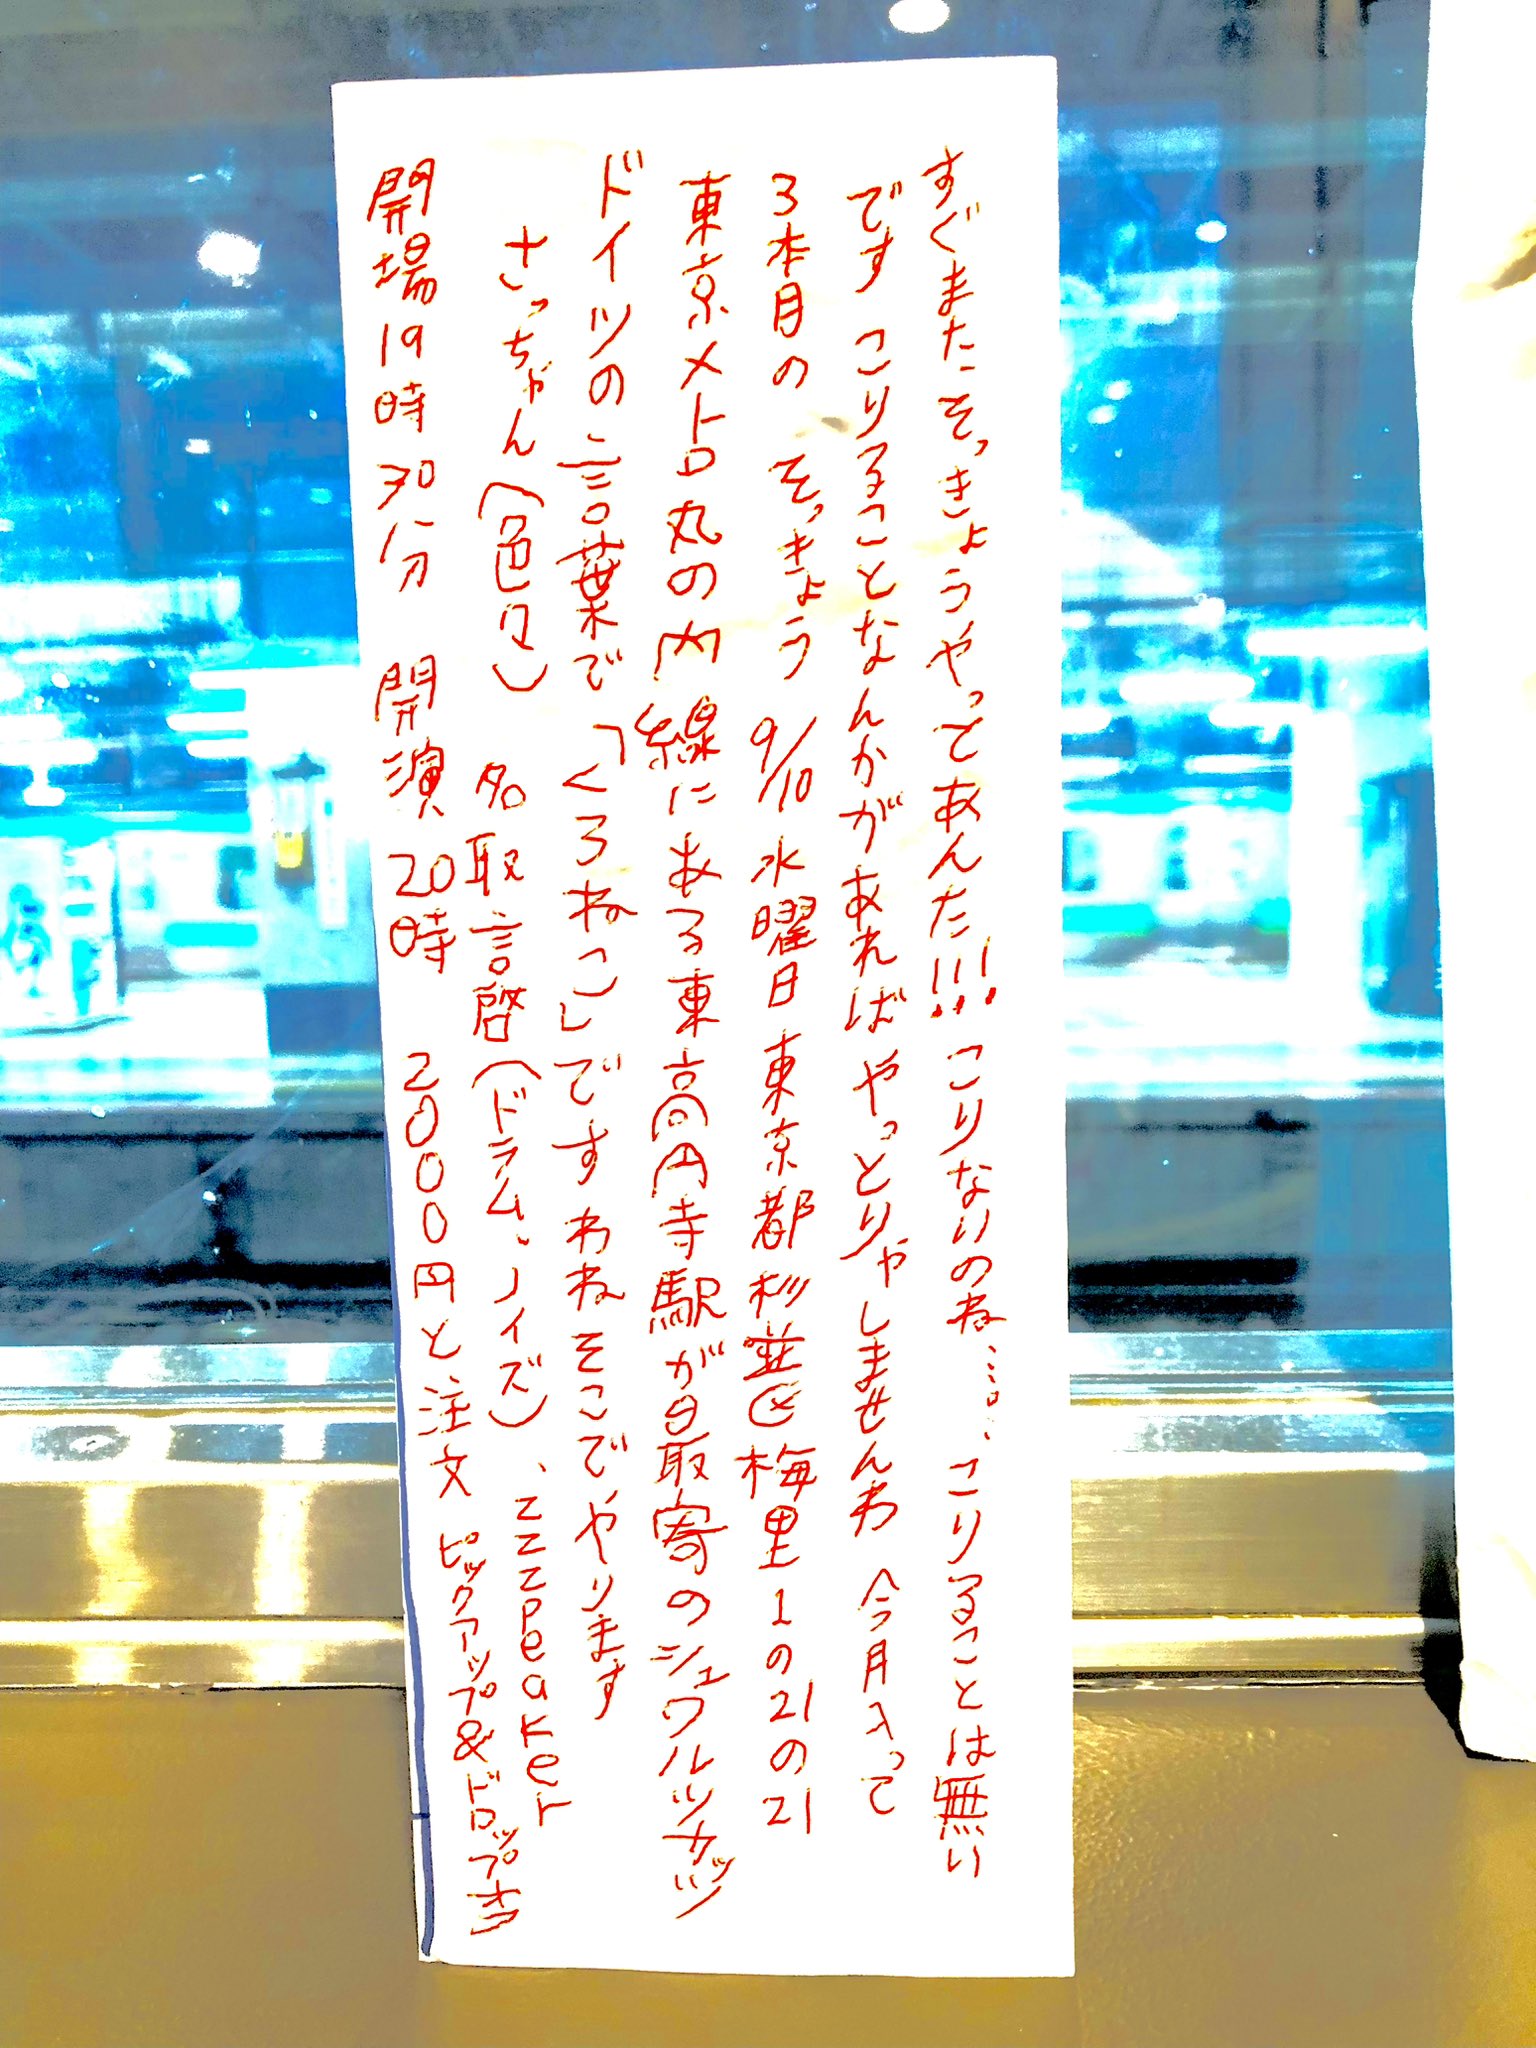 すぐまたそっきょうやってあんた!!! こりないのね……。 こりることは無い
です こりることなんかがあればやっとりゃしませんわ 今月入って
3本目の そっきょう 9/10 水曜日 東京都杉並区梅里1の21の21
東京メトロ丸の内線にある東高円寺駅が目取寄のシュワルツカッツ
ドイツの言葉で「くろねこ」ですわねそこでやります
さっちゃん(色々) 名取言啓(ドラム、ノイズ)、zzzpeaker
開場19時30分 開演20時 2000円と注文 ピックアップ&ドロップ有